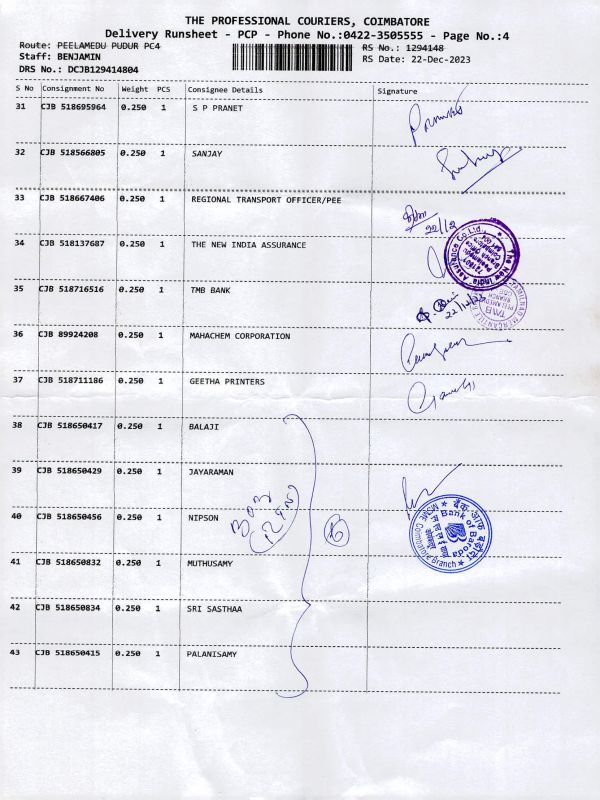 THE PROFESSIONAL COURIERS, COIMBATORE
Delivery Runsheet - PCP - Phone No.:0422-3505555 - Page No.:4
Route: PEELAMEDU PUDUR PC4
RS No.: 1294148
Staff: BENJAMIN
RS Date: 22-Dec-2023
DRS No.: DCJB129414804
S No Consignment No Weight PCS Consignee Details Signature
31 CJB 518695964 0.250 1 S P PRANET
32 CJB 518566805 0.250 1 SANJAY
33 CJB 518667406 0.250 1 REGIONAL TRANSPORT OFFICER/PEE
22/12
34 CJB 518137687 0.250 1 THE NEW INDIA ASSURANCE
The New India Assurance Co.Ltd.
35 CJB 518716516 0.250 1 TMB BANK
22/12/23
TMB
36 CJB 89924208 0.250 1 MAHACHEM CORPORATION
37 CJB 518711186 0.250 1 GEETHA PRINTERS
38 CJB 518650417 0.250 1 BALAJI
39 CJB 518650429 0.250 1 JAYARAMAN
40 CJB 518650456 0.250 1 NIPSON
BOB
6
बैंक ऑफ़ बड़ौदा
Bank of Baroda
41 CJB 518650832 0.250 1 MUTHUSAMY
42 CJB 518650834 0.250 1 SRI SASTHAA
43 CJB 518650415 0.250 1 PALANISAMY